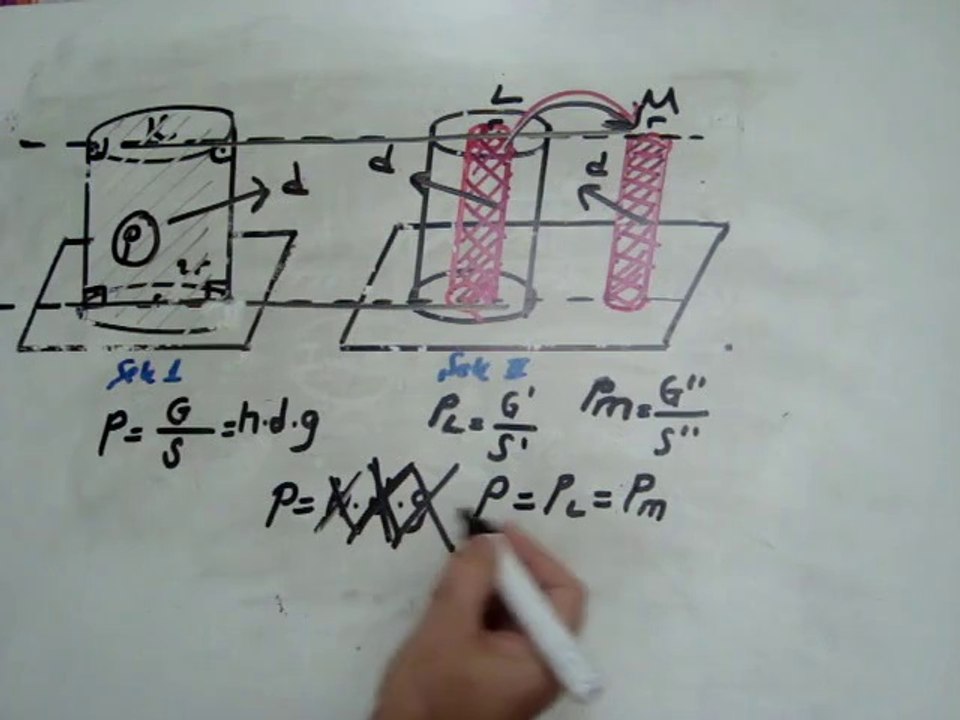 K L M
d d d
P
2r
Şekil I Şekil II
P = G/S = h.d.g P_L = G'/S' P_M = G''/S''
P = P = P_L = P_M